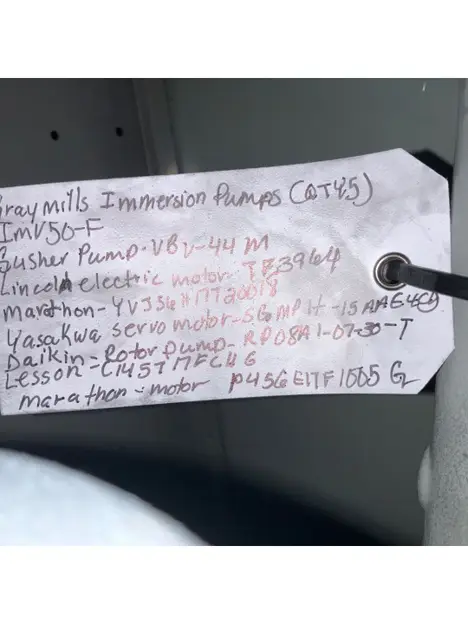 Graymills Immersion Pumps (QTY5)
ImV50-F
Gusher Pump-VBV-44M
Lincoln electric motor- TF3964
marathon- YVJ56H17T20018
Yasakwa servo motor-SGMPH-15AAE4CD
Daikin- Rotor Pump- RP08A1-07-30-T
Lesson- C145T17FC46
marathon-motor P456E17F1005 G2